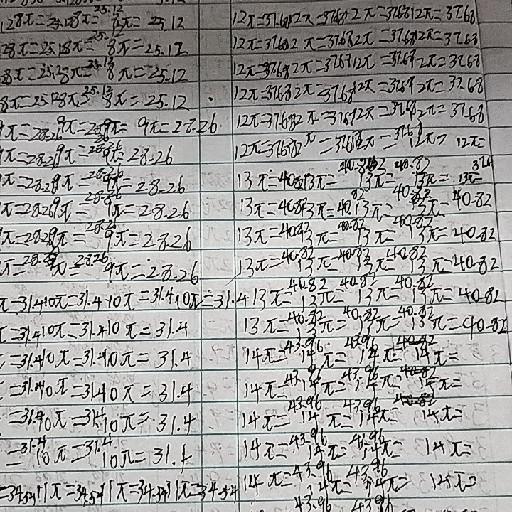 8π=25.12 8π=25.12 8π=25.12
8π=25.12 8π=25.12 8π=25.12
8π=25.12 8π=25.12 8π=25.12
8π=25.12 8π=25.12 8π=25.12
9π=28.26 9π=28.26 9π=28.26
9π=28.26 9π=28.26 9π=28.26
9π=28.26 9π=28.26 9π=28.26
9π=28.26 9π=28.26 9π=28.26
9π=28.26 9π=28.26 9π=28.26
π=28.26 9π=28.26 9π=28.26
π=31.4 10π=31.4 10π=31.4 10π=31.4
=31.4 10π=31.4 10π=31.4
=31.4 10π=31.4 10π=31.4
=31.4 10π=31.4 10π=31.4
=31.4 10π=31.4 10π=31.4
=31.4 10π=31.4 10π=31.4
=34.54 11π=34.54 11π=34.54 11π=34.54
12π=37.68 12π=37.68 12π=37.68 12π=37.68
12π=37.68 12π=37.68 12π=37.68 12π=37.68
12π=37.68 12π=37.68 12π=37.68 12π=37.68
12π=37.68 12π=37.68 12π=37.68 12π=37.68
12π=37.68 12π=37.68 12π=37.68 12π=37.68
12π=37.68 12π=37.68 12π=37.68 12π= 12π=
13π=40.82 13π=40.82 13π=40.82 13π= 13π=
13π=40.82 13π=40.82 13π=40.82 13π=40.82
13π=40.82 13π=40.82 13π=40.82 13π=40.82
13π=40.82 13π=40.82 13π=40.82 13π=40.82
13π=40.82 13π=40.82 13π=40.82 13π=40.82
13π=40.82 13π=40.82 13π=40.82 13π=40.82
14π=43.96 14π=43.96 14π= 14π=
14π=43.96 14π=43.96 14π= 14π=
14π=43.96 14π=43.96 14π= 14π=
14π=43.96 14π=43.96 14π= 14π=
14π=43.96 14π=43.96 14π= 14π=
43.96 43.96